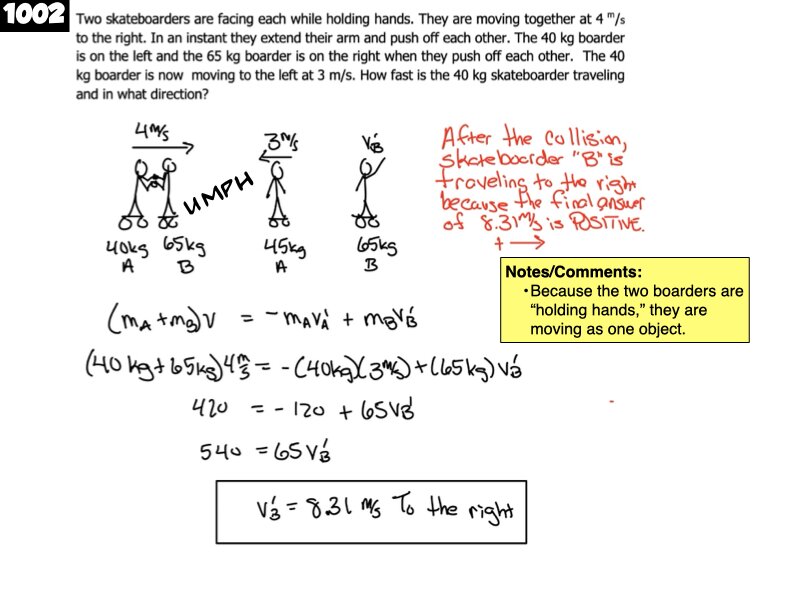 1002
Two skateboarders are facing each while holding hands. They are moving together at 4 m/s
to the right. In an instant they extend their arm and push off each other. The 40 kg boarder
is on the left and the 65 kg boarder is on the right when they push off each other. The 40
kg boarder is now moving to the left at 3 m/s. How fast is the 40 kg skateboarder traveling
and in what direction?
4 m/s
3 m/s
V'B
UMPH
40kg 65kg
A B
45kg
A
65kg
B
After the collision,
skateboarder "B" is
traveling to the right
because the final answer
of 8.31 m/s is POSITIVE.
+ →
Notes/Comments:
•Because the two boarders are
“holding hands,” they are
moving as one object.
(mA + mB)V = -mAV'A + mBV'B
(40 kg + 65kg)4 m/s = -(40kg)(3 m/s) + (65kg)V'B
420 = - 120 + 65V'B
540 = 65V'B
V'B = 8.31 m/s To the right